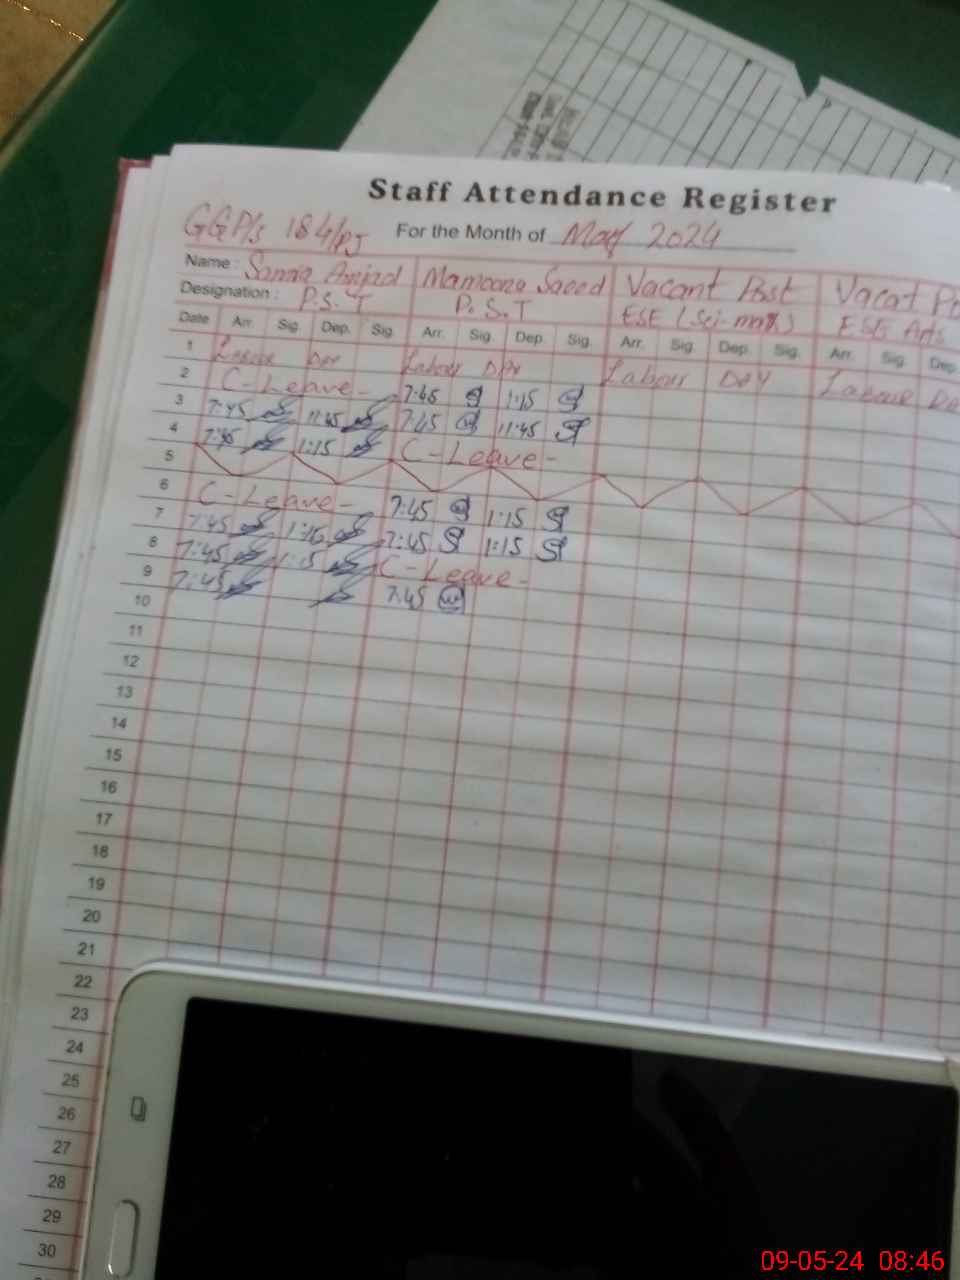 Staff Attendance Register
GGP/s 184/PJ For the Month of May 2024
Name : Sannia Amjad Mamoona Saeed Vacant Post Vacat Po
Designation : P.S.T P.S.T ESE (Sci-math) ESE Arts
Date Arr. Sig. Dep. Sig. Arr. Sig. Dep. Sig. Arr. Sig. Dep. Sig. Arr. Sig. Dep.
1 Labour Day Labour Day Labour DAY Labour Da
2 C-Leave- 7:45 1:15
3 7:45 11:45 7:45 11:45
4 7:45 1:15 C-Leave-
5
6 C-Leave- 7:45 1:15
7 7:45 1:15 7:45 1:15
8 7:45 1:15 C-Leave-
9 7:45 7:45
10
11
12
13
14
15
16
17
18
19
20
21
22
23
24
25
26
27
28
29
30
09-05-24 08:46